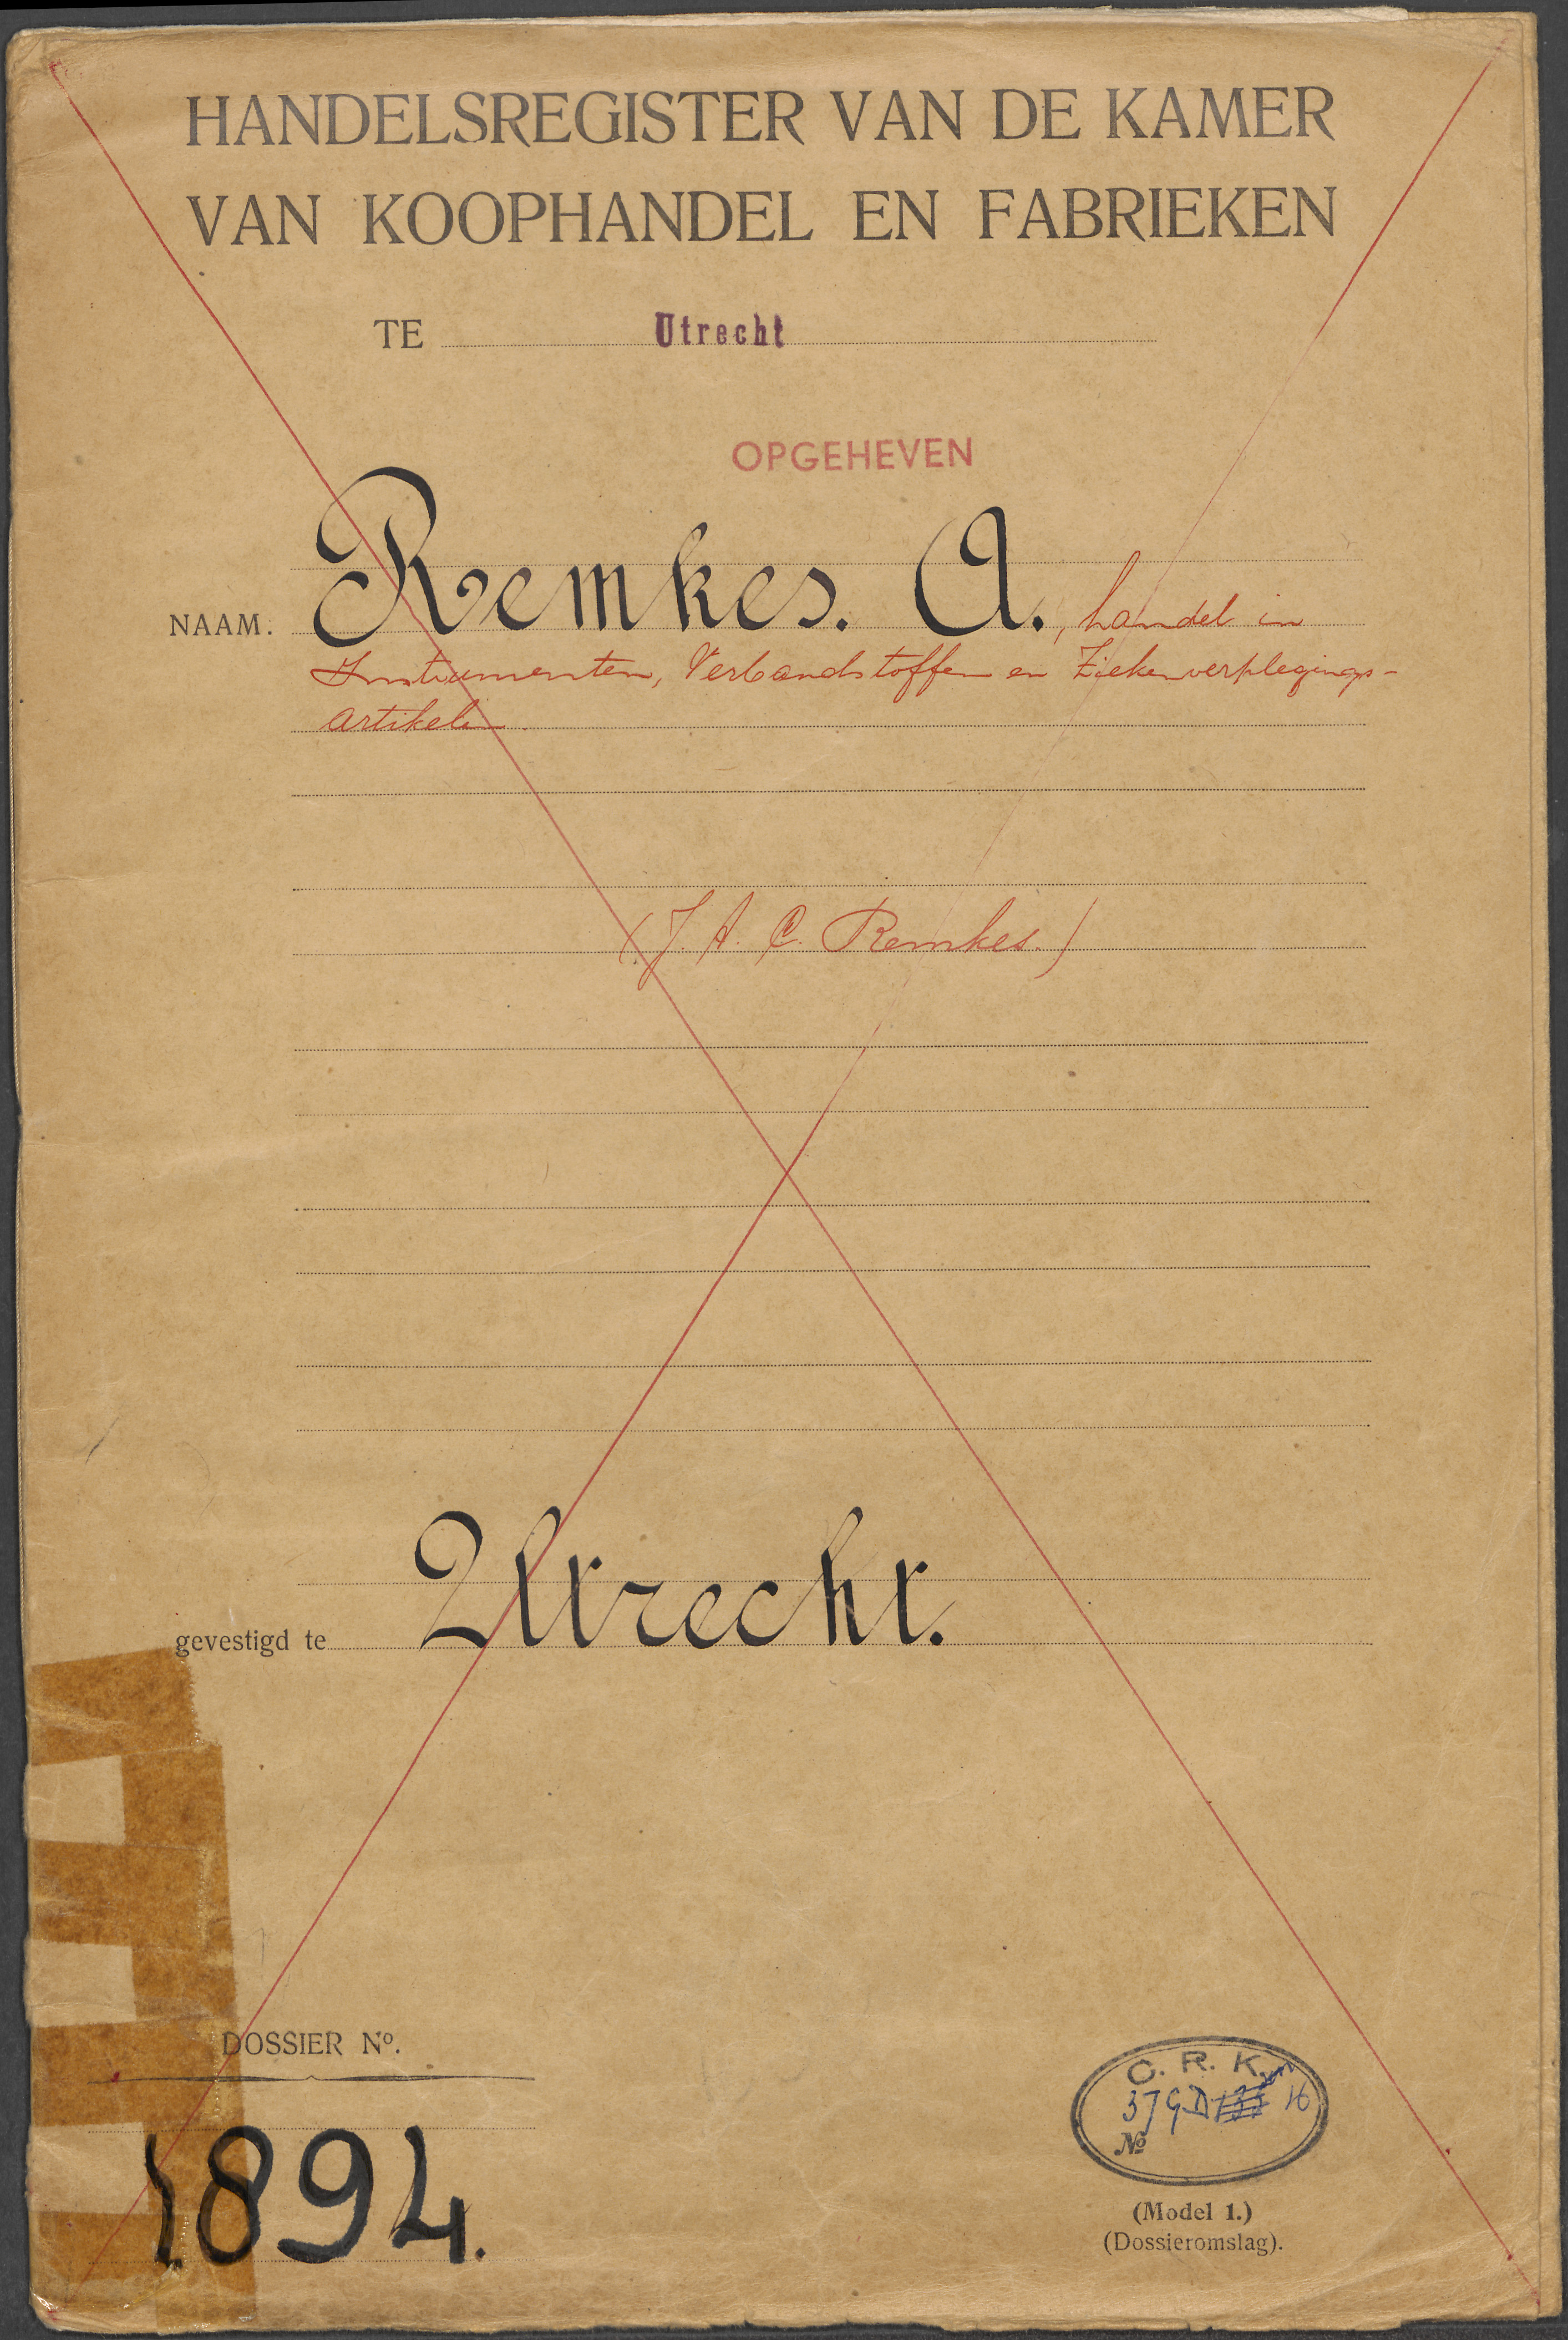 HANDELSREGISTER VAN DE KAMER
VAN KOOPHANDEL EN FABRIEKEN
TE Utrecht
OPGEHEVEN
NAAM. Remkes. A., handel in
Instrumenten, Verbandstoffen en Ziekenverplegings-
artikelen.
(J. A. C. Remkes.)
gevestigd te Utrecht.
DOSSIER Nº.
1894.
C. R. K.
37 G D 16
Nº
(Model 1.)
(Dossieromslag).